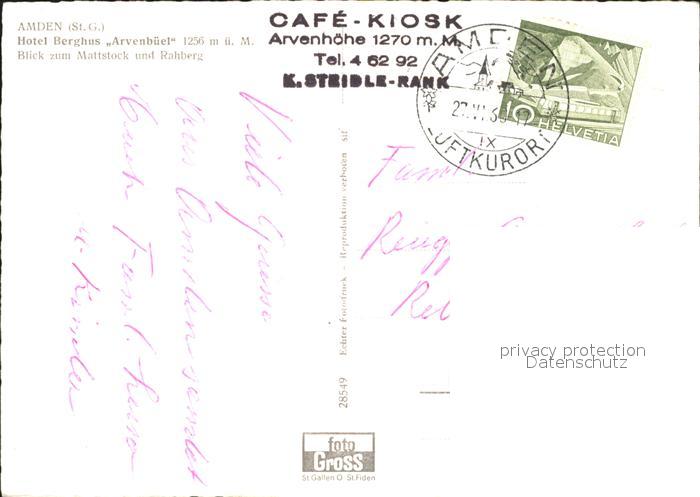 AMDEN (St. G.)
Hotel Berghus „Arvenbüel" 1256 m ü. M.
Blick zum Mattstock und Rahberg
CAFÉ-KIOSK
Arvenhöhe 1270 m. M.
Tel. 4 62 92
K. STEIDLE-RANK
AMDEN
27.VI.6
IX
LUFTKURORT
10
HELVETIA
Viele Grüsse
Aus Amden sendet
Euch Faml.
u. Kinder
Faml
28549 Echter Fotodruck - Reproduktion verboten
privacy protection
Datenschutz
foto
Gross
St Gallen O St.Fiden